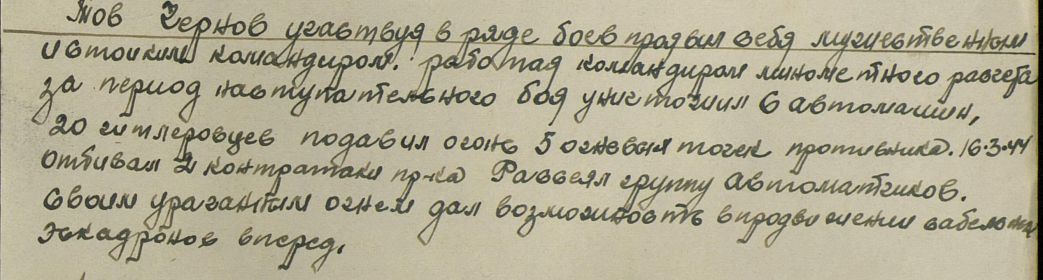 Тов Чернов участвуя в ряде боев проявил себя мужественным
и стойким командиром. работая командиром минометного расчета
за период наступательного боя уничтожил 6 автомашин,
20 гитлеровцев подавил огонь 5 огневых точек противника. 16.3.44
отбивал 2 контратаки пр-ка Рассеял группу автоматчиков.
своим ураганным огнем дал возможность в продвижении сабельных
эскадронов вперед.